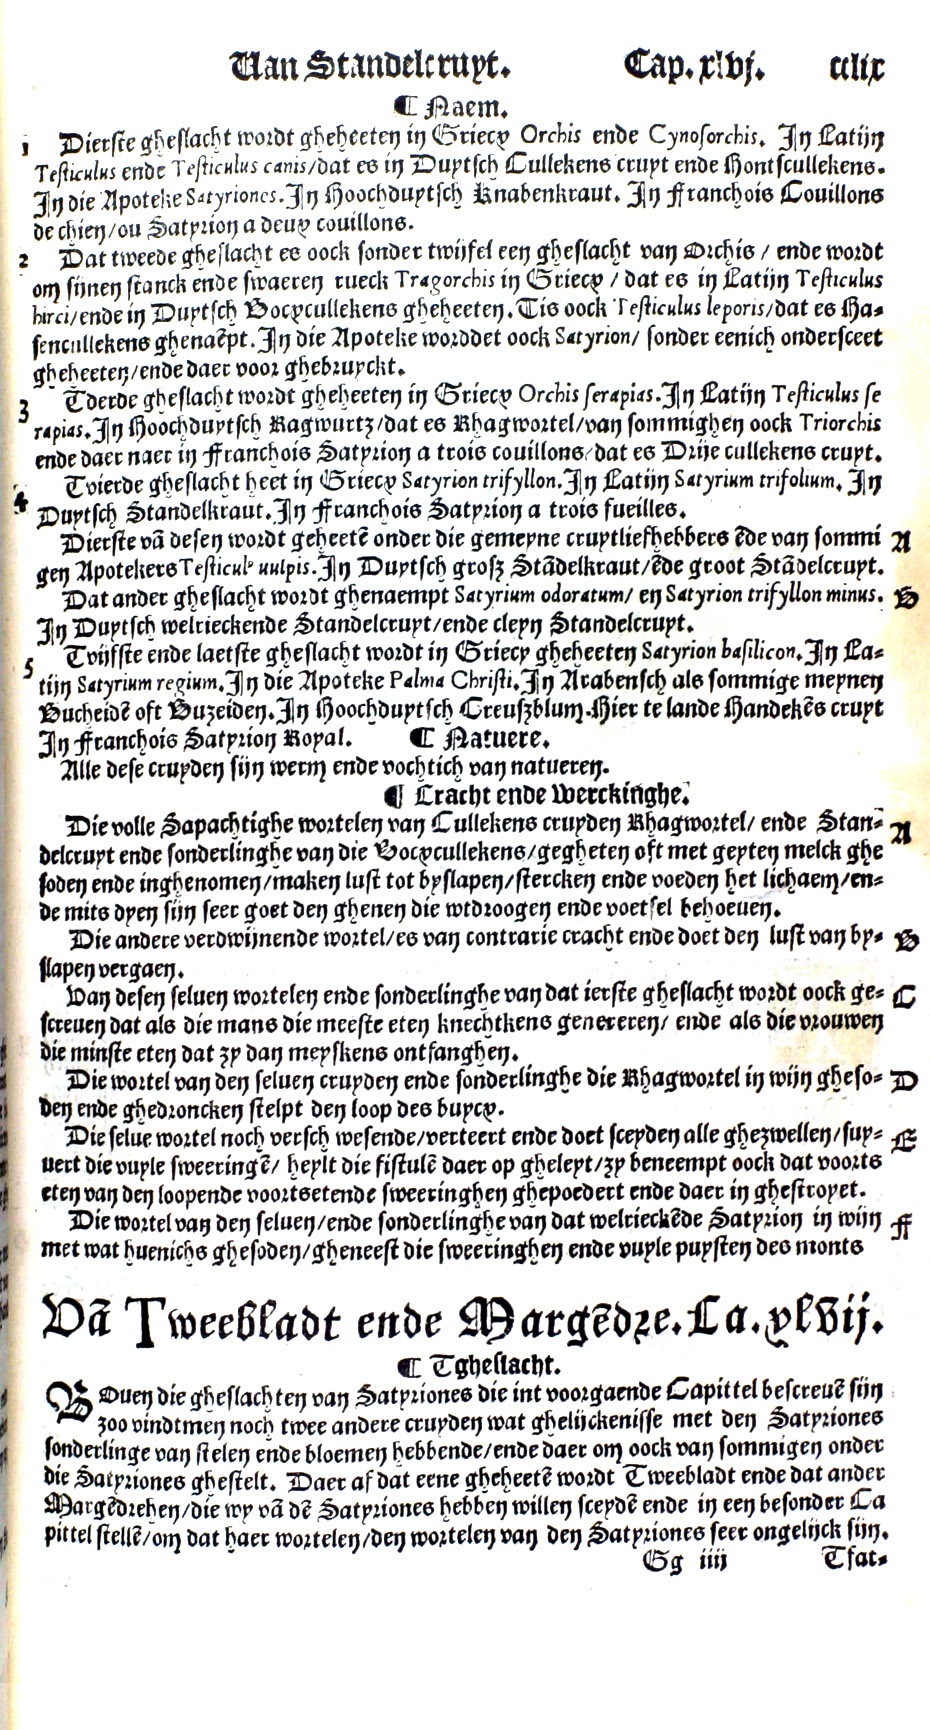 Van Standelcruyt. Cap. xlvj. cclix
¶ Naem.
1 Dierste gheslacht wordt gheheeten in Griecx Orchis ende Cynosorchis. In Latijn
Testiculus ende Testiculus canis/dat es in Duytsch Cullekens cruyt ende Hontscullekens.
In die Apoteke Satyriones. In Hoochduytsch Knabenkraut. In Franchois Couillons
de chien/ou Satyrion a deux couillons.
2 Dat tweede gheslacht es oock sonder twijfel een gheslacht van Orchis / ende wordt
om sijnen stanck ende swaeren rueck Tragorchis in Griecx / dat es in Latijn Testiculus
hirci/ende in Duytsch Bocxcullekens gheheeten. Tis oock Testiculus leporis/dat es Ha-
sencullekens ghenaēpt. In die Apoteke worddet oock Satyrion/ sonder eenich ondersceet
gheheeten/ende daer voor ghebruyckt.
3 Tderde gheslacht wordt gheheeten in Griecx Orchis serapias. In Latijn Testiculus se
rapias. In Hoochduytsch Ragwurtz/dat es Rhagwortel/van sommighen oock Triorchis
ende daer naer in Franchois Satyrion a trois couillons/dat es Drije cullekens cruyt.
4 Tvierde gheslacht heet in Griecx Satyrion trifyllon. In Latijn Satyrium trifolium. In
Duytsch Standelkraut. In Franchois Satyrion a trois fueilles.
Dierste vā desen wordt geheetē onder die gemeyne cruytliefhebbers ēde van sommi A
gen Apotekers Testiculꝰ vulpis. In Duytsch grosz Stādelkraut/ēde groot Stādelcruyt.
Dat ander gheslacht wordt ghenaempt Satyrium odoratum/ en Satyrion trifyllon minus. B
In Duytsch welrieckende Standelcruyt/ende cleyn Standelcruyt.
5 Tvijfste ende laetste gheslacht wordt in Griecx gheheeten Satyrion basilicon. In La-
tijn Satyrium regium. In die Apoteke Palma Christi. In Arabensch als sommige meynen
Bucheidē oft Buzeiden. In Hoochduytsch Creuszblum. Hier te lande Handekēs cruyt
In Franchois Satyrion Royal. ¶ Natuere.
Alle dese cruyden sijn werm ende vochtich van natueren.
¶ Cracht ende Werckinghe.
Die volle Sapachtighe wortelen van Cullekens cruyden Rhagwortel/ ende Stan- A
delcruyt ende sonderlinghe van die Bocxcullekens/gegheten oft met geyten melck ghe
soden ende inghenomen/maken lust tot byslapen/stercken ende voeden het lichaem/en-
de mits dyen sijn seer goet den ghenen die wtdroogen ende voetsel behoeuen.
Die andere verdwijnende wortel/es van contrarie cracht ende doet den lust van by- B
slapen vergaen.
Van desen seluen wortelen ende sonderlinghe van dat ierste gheslacht wordt oock ge- C
screuen dat als die mans die meeste eten knechtkens genereren/ ende als die vrouwen
die minste eten dat zy dan meyskens ontfanghen.
Die wortel van den seluen cruyden ende sonderlinghe die Rhagwortel in wijn gheso- D
den ende ghedroncken stelpt den loop des buycx.
Die selue wortel noch versch wesende/verteert ende doet sceyden alle ghezwellen/suy- E
uert die vuyle sweeringē/ heylt die fistulē daer op gheleyt/zy beneempt oock dat voorts
eten van den loopende voortsetende sweeringhen ghepoedert ende daer in ghestroyet.
Die wortel van den seluen/ende sonderlinghe van dat welrieckēde Satyrion in wijn F
met wat huenichs ghesoden/gheneest die sweeringhen ende vuyle puysten des monts
Vā Tweebladt ende Margēdre. Ca. xlvij.
¶ Tgheslacht.
BOuen die gheslachten van Satyriones die int voorgaende Capittel bescreuē sijn
zoo vindtmen noch twee andere cruyden wat ghelijckenisse met den Satyriones
sonderlinge van stelen ende bloemen hebbende/ende daer om oock van sommigen onder
die Satyriones ghestelt. Daer af dat eene gheheetē wordt Tweebladt ende dat ander
Margēdrehen/die wy vā dē Satyriones hebben willen sceydē ende in een besonder Ca
pittel stellē/om dat haer wortelen/den wortelen van den Satyriones seer ongelijck sijn.
Gg iiij Tfat-